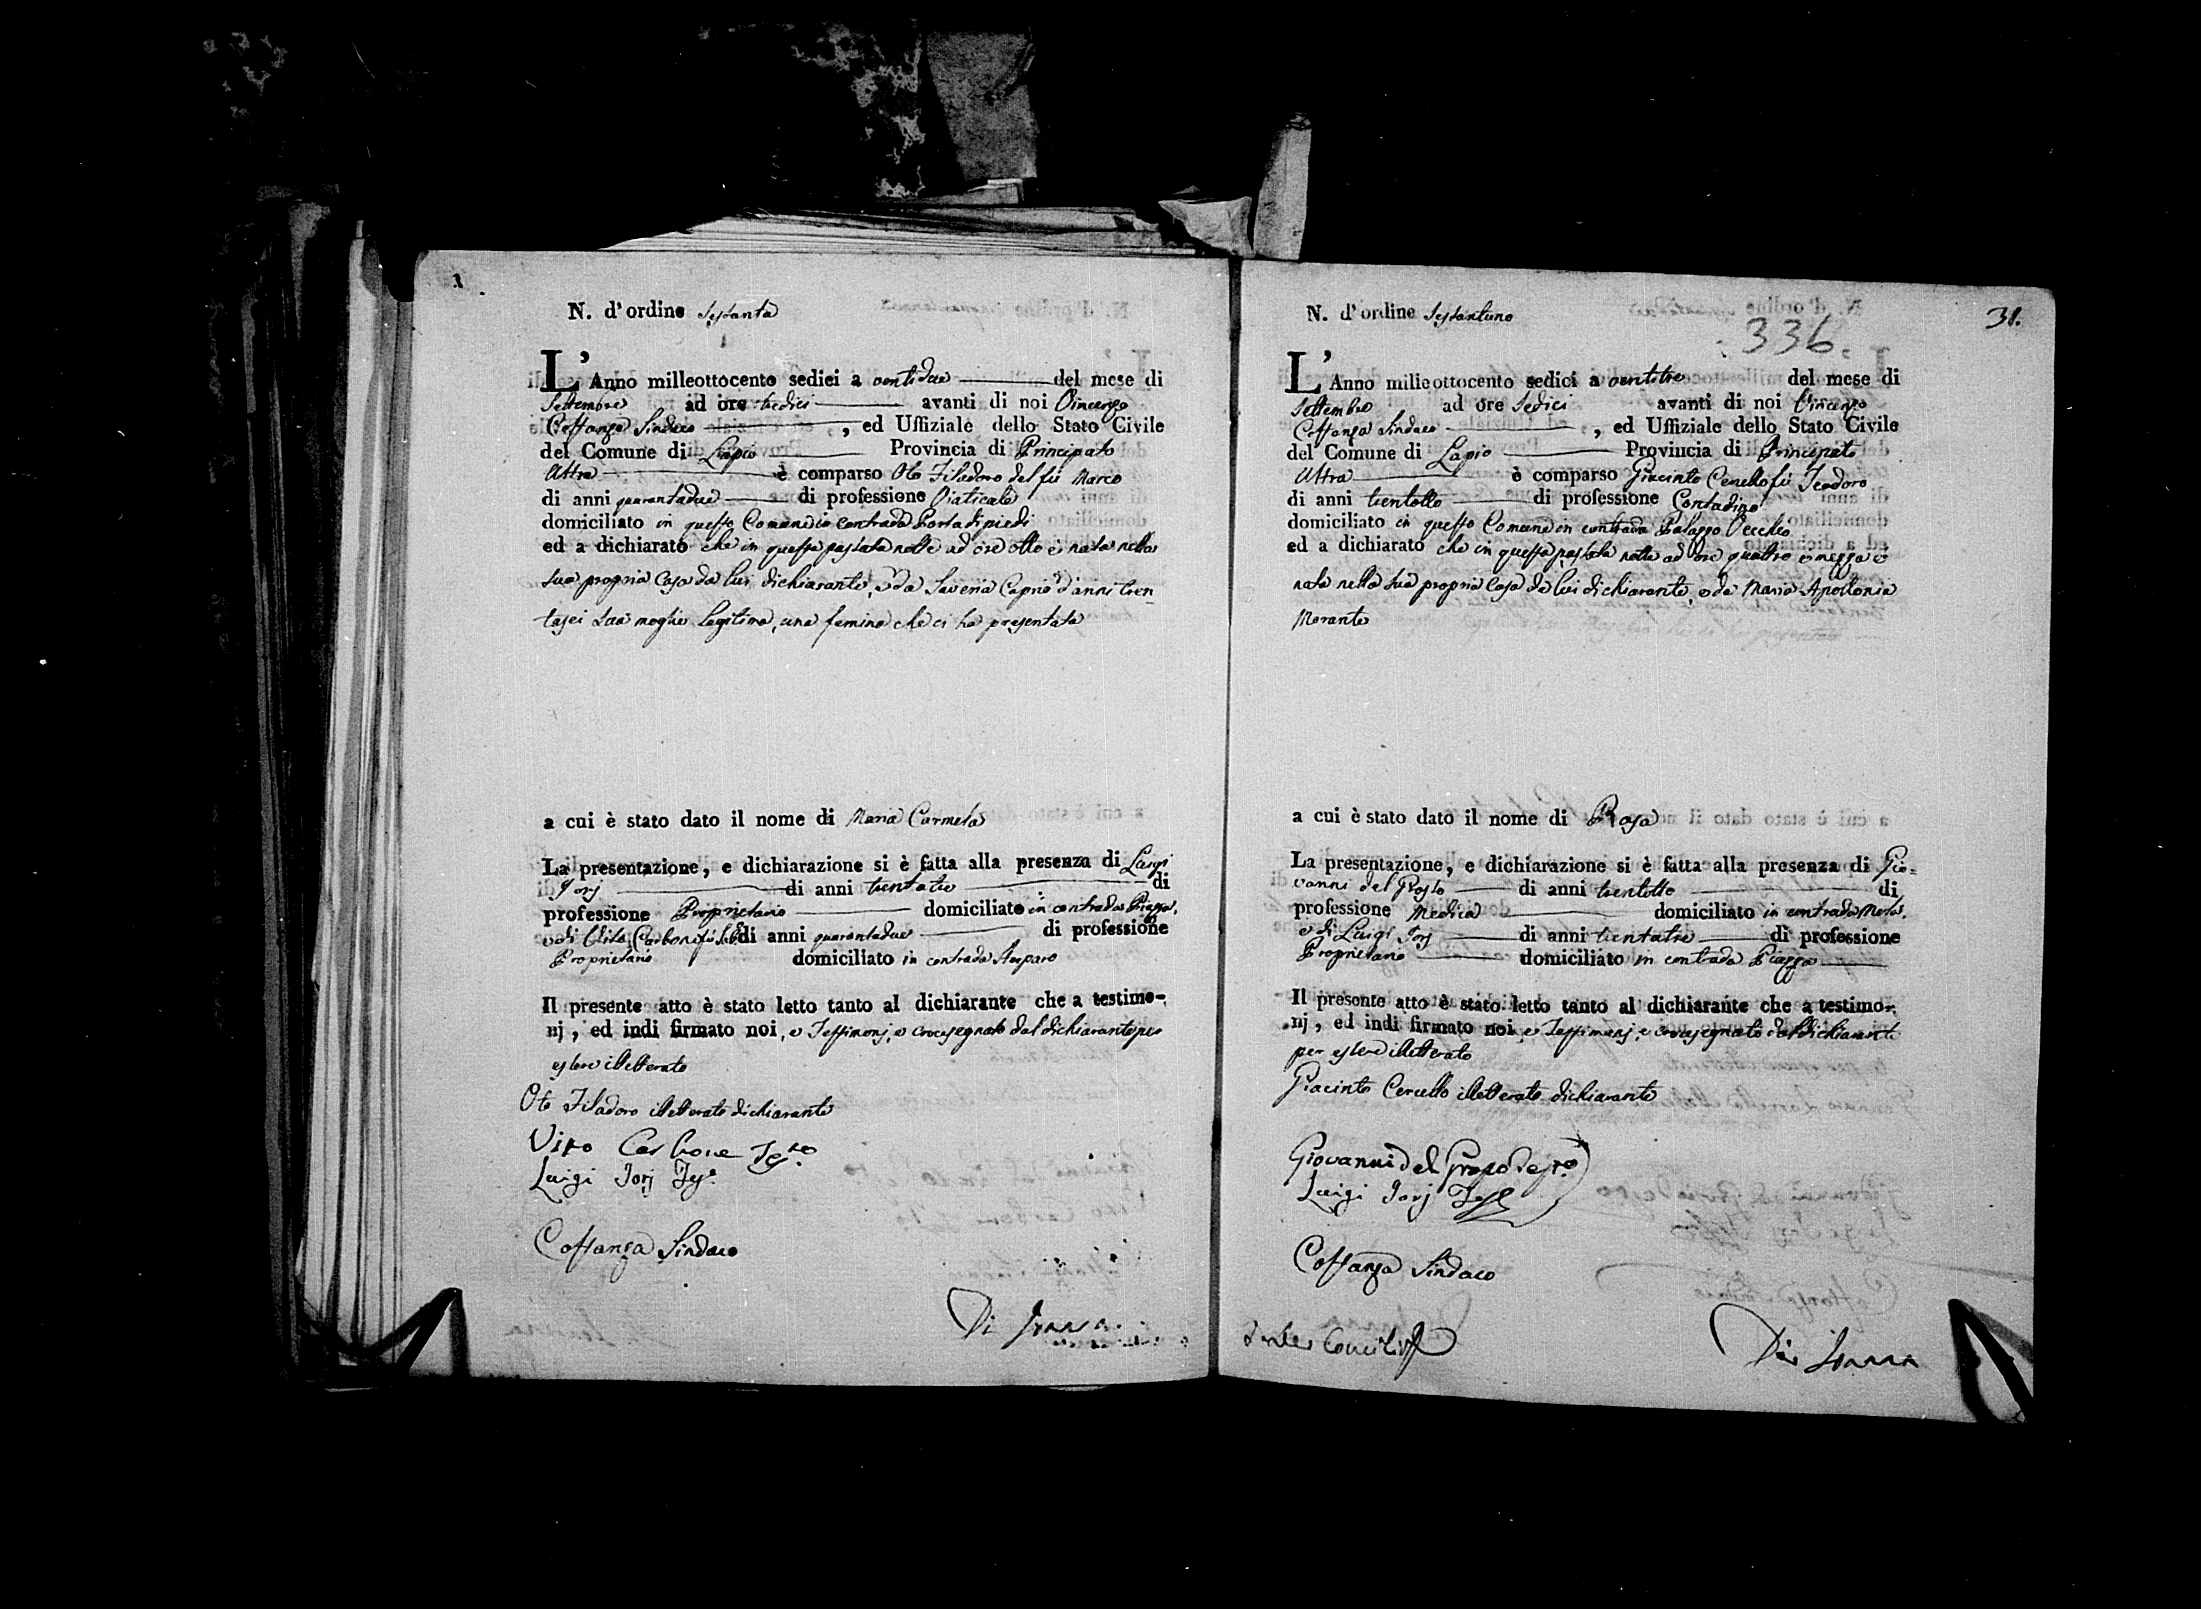 N. d'ordine Sessanta
L'Anno milleottocento sedici a ventidue del mese di
Settembre ad ore tredici avanti di noi Vincenzo
Costanza Sindaco, ed Uffiziale dello Stato Civile
del Comune di Lapio Provincia di Principato
Ultra è comparso Oto Filadoro del fù Marco
di anni quarantadue di professione Viaticale
domiciliato in questo Comune in contrada Porta di piedi
ed a dichiarato che in questa passata notte ad ore otto è nata nella
sua propria Casa da lui dichiarante, e da Saveria Caprio d'anni tren-
tasei sua moglie legitima, una femina che ci ha presentata
a cui è stato dato il nome di Maria Carmela
La presentazione, e dichiarazione si è fatta alla presenza di Luigi
Iorj di anni trentatre di
professione Proprietario domiciliato in contrada Piazza,
e di Vito Carbone fù di anni quarantadue di professione
Proprietario domiciliato in contrada
Il presente atto è stato letto tanto al dichiarante che a testimo-
nj, ed indi firmato noi, e Testimonj, e crocesegnato dal dichiarante per
essere illetterato
Oto Filadoro illetterato dichiarante
Vito Carbone Tes.to
Luigi Iorj Tes.e
Costanza Sindaco
Di
N. d'ordine Sessantuno
31.
336.
L'Anno milleottocento sedici a ventitre del mese di
Settembre ad ore Sedici avanti di noi Vincenzo
Costanza Sindaco, ed Uffiziale dello Stato Civile
del Comune di Lapio Provincia di Principato
Ultra è comparso Giacinto Cerullo fù Teodoro
di anni trentotto di professione Contadino
domiciliato in questo Comune in contrada Palazzo Vecchio
ed a dichiarato che in questa passata notte ad ore quattro e mezza è
nata nella sua propria Casa da lui dichiarante, e da Maria Apollonia
Morante
a cui è stato dato il nome di Rosa
La presentazione, e dichiarazione si è fatta alla presenza di Gio=
vanni del Grosso di anni trentotto di
professione Medico domiciliato in contrada
e di Luigi Iorj di anni trentatre di professione
Proprietario domiciliato in contrada Piazza
Il presente atto è stato letto tanto al dichiarante che a testimo-
nj, ed indi firmato noi, e Testimonj, e crocesegnato dal dichiarante
per essere illetterato
Giacinto Cerullo illetterato dichiarante
Giovanni del Grosso
Luigi Iorj
Costanza Sindaco